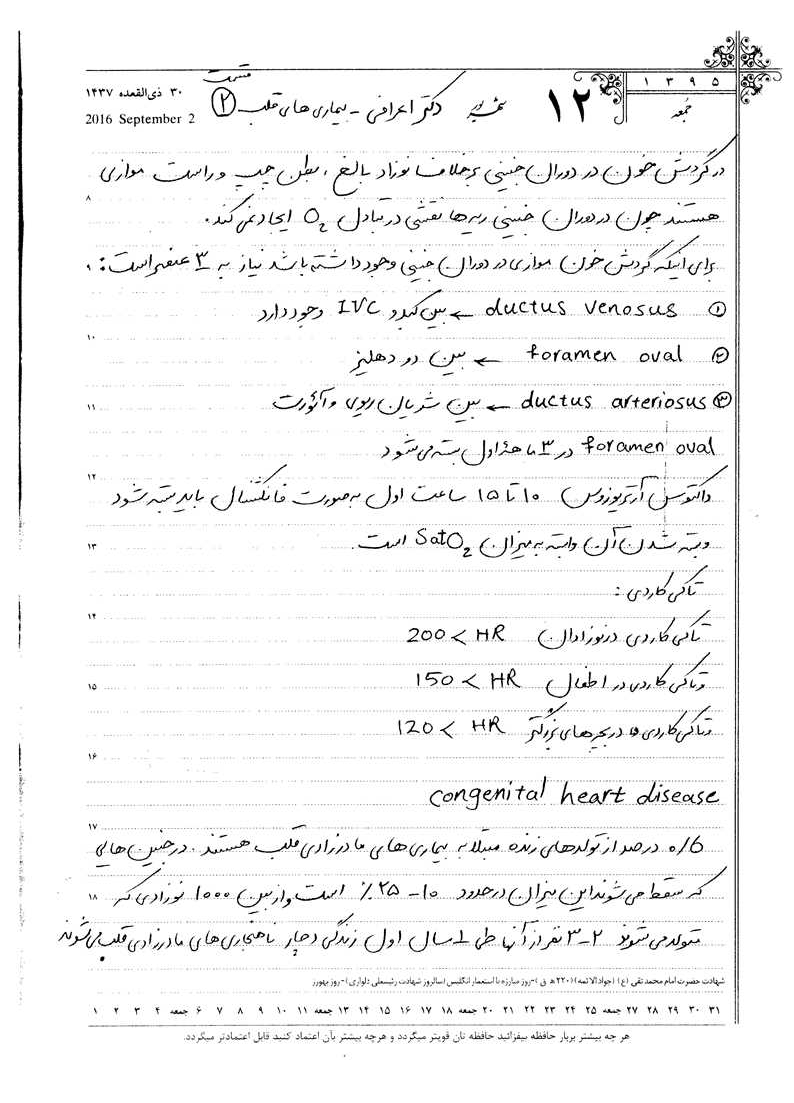 ۱۳۹۵
جُمعه
۱۲
شهریور
دکتر اعرافی - بیماری های قلب ②
قسمت
۳۰ ذی‌القعده ۱۴۳۷
2016 September 2
در گردش خون در دوران جنینی برخلاف نوزاد بالغ، بطن چپ و راست موازی
۸
هستند چون در دوران جنینی ریه‌ها نقشی در تبادل O₂ ایجاد نمی کند.
برای اینکه گردش خون موازی در دوران جنینی وجود داشته باشد نیاز به ۳ عنصر است:
۹
① ductus venosus ← بین کبد و IVC وجود دارد
۱۰
② foramen oval ← بین دو دهلیز
③ ductus arteriosus ← بین شریان ریوی و آئورت
۱۱
foramen oval در ۳ ماههٔ اول بسته می شود
۱۲
داکتوس آرتریوزوس ۱۰ تا ۱۵ ساعت اول به صورت فانکشنال باید بسته شود
وبسته شدن آن وابسته به میزان SatO₂ است.
۱۳
تاکی کاردی :
۱۴
تاکی کاردی در نوزادان HR > 200
وتاکی کاردی در اطفال HR > 150
۱۵
وتاکی کاردی در بچه های بزرگتر HR > 120
۱۶
congenital heart disease
۱۷
۰/۶ درصد از تولدهای زنده مبتلا به بیماری های مادرزادی قلب هستند. در جنین هایی
که سقط می شوند این میزان در حدود ۱۰-۲۵٪ است و از بین ۱۰۰۰ نوزادی که
۱۸
متولد می شوند ۲-۳ نفر از آنها طی ۱ سال اول زندگی دچار ناهنجاری های مادرزادی قلب می شوند.
شهادت حضرت امام محمد تقی (ع) (جواد الائمه) (۲۲۰ه ق) -روز مبارزه با استعمار انگلیس (سالروز شهادت رئیسعلی دلواری) -روز بهورز
۱ ۲ ۳ ۴ جمعه ۶ ۷ ۸ ۹ ۱۰ ۱۱ جمعه ۱۳ ۱۴ ۱۵ ۱۶ ۱۷ ۱۸ جمعه ۲۰ ۲۱ ۲۲ ۲۳ ۲۴ ۲۵ جمعه ۲۷ ۲۸ ۲۹ ۳۰ ۳۱
هر چه بیشتر بربار حافظه بیفزائید حافظه تان قویتر میگردد و هرچه بیشتر بآن اعتماد کنید قابل اعتمادتر میگردد.